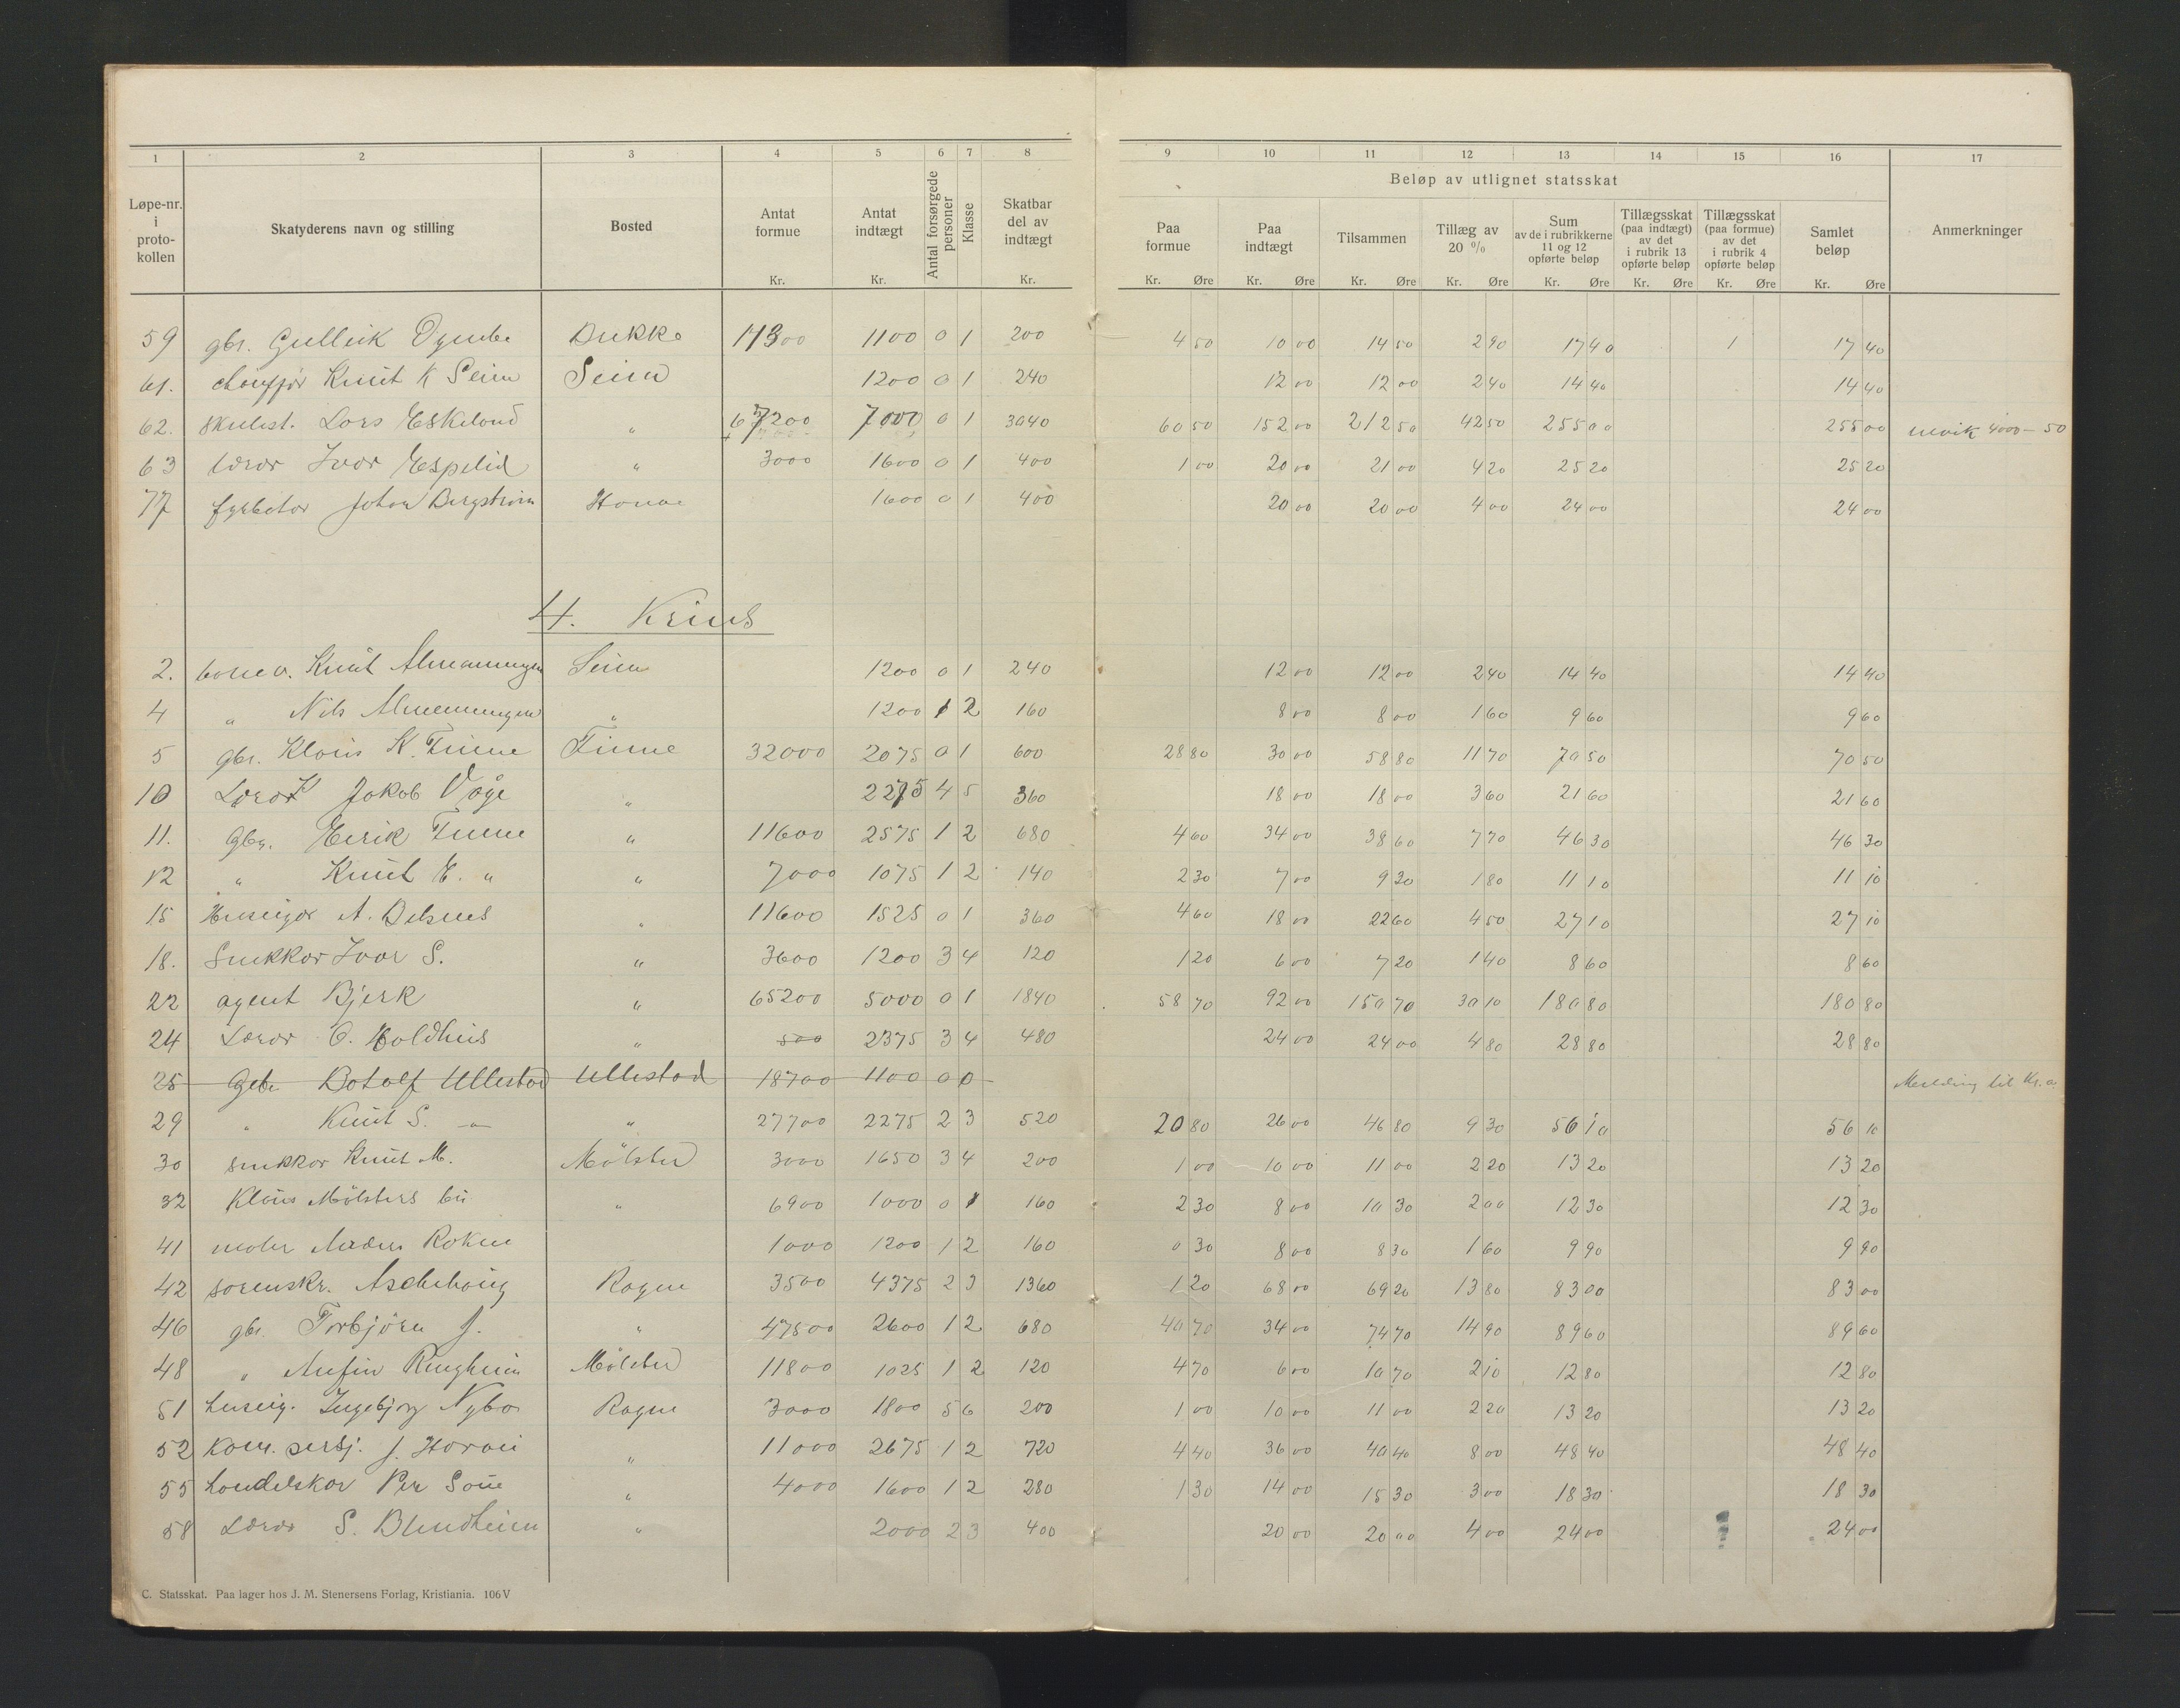 1 2 3 4 5 6 7 8 9 10 11 12 13 14 15 16 17
Beløp av utlignet statsskat
Løpe-nr. i proto-kollen
Skatyderens navn og stilling
Bosted
Antat formue Kr.
Antat indtægt Kr.
Antal forsørgede personer
Klasse
Skatbar del av indtægt Kr.
Paa formue Kr. Øre
Paa indtægt Kr. Øre
Tilsammen Kr. Øre
Tillæg av 20 % Kr. Øre
Sum av de i rubrikkerne 11 og 12 opførte beløp Kr. Øre
Tillægsskat (paa indtægt) av det i rubrik 13 opførte beløp Kr. Øre
Tillægsskat (paa formue) av det i rubrik 4 opførte beløp Kr. Øre
Samlet beløp Kr. Øre
Anmerkninger
59 gbr. Gullik Bukke 1100 0 1 200 4 50 10 00 14 50 2 90 17 40 1 17 40
61. Knut K Seim Seim 1200 0 1 240 12 00 12 00 2 40 14 40 14 40
62. skulest. Lars Eskeland " 7000 0 1 3040 60 50 152 00 212 50 42 50 255 00 255 00 4000 — 50
63 lærar Ivar Espelid " 3000 1600 0 1 400 1 00 20 00 21 00 4 20 25 20 25 20
77 fyrbetar Johan Bergstrøm 1600 0 1 400 20 00 20 00 4 00 24 00 24 00
4. Krins
2. Knut Almenningen Seim 1200 0 1 240 12 00 12 00 2 40 14 40 14 40
4 " Nils Almenningen " 1200 1 2 160 8 00 8 00 1 60 9 60 9 60
5 gbr. Klaus K. Finne Finne 32000 2075 0 1 600 28 80 30 00 58 80 11 70 70 50 70 50
10 Lærar Jakob Våge " 2275 4 5 360 18 00 18 00 3 60 21 60 21 60
11. gbr. Eirik Finne " 11600 2575 1 2 680 4 60 34 00 38 60 7 70 46 30 46 30
12 " Knut E. " " 7000 1075 1 2 140 2 30 7 00 9 30 1 80 11 10 11 10
15 Huseigar A. " 11600 1525 0 1 360 4 60 18 00 22 60 4 50 27 10 27 10
18. Snikkar Ivar S. " 3600 1200 3 4 120 1 20 6 00 7 20 1 40 8 60 8 60
22 agent Bjerk " 65200 5000 0 1 1840 58 70 92 00 150 70 30 10 180 80 180 80
24 Lærar O. Holdhus " 500 2375 3 4 480 24 00 24 00 4 80 28 80 28 80
25 Gbr Botolf Ullestad Ullestad 18700 1100 0 0 Melding til Kr.a
29 " Knut S. — " 27700 2275 2 3 520 20 80 26 00 46 80 9 30 56 10 56 10
30 snikkar Knut M. Mölster 3000 1650 3 4 200 1 00 10 00 11 00 2 20 13 20 13 20
32 Klaus Mölsters bu " 6900 1000 0 1 160 2 30 8 00 10 30 2 00 12 30 12 30
41 malar Anders Rokne 1000 1200 1 2 160 0 30 8 00 8 30 1 60 9 90 9 90
42 sorenskr. Aschehoug Rogne 3500 4375 2 3 1360 1 20 68 00 69 20 13 80 83 00 83 00
46 gbr. Torbjörn J. " 47500 2600 1 2 680 40 70 34 00 74 70 14 90 89 60 89 60
48 " Anfin Ringheim Mölster 11800 1025 1 2 120 4 70 6 00 10 70 2 10 12 80 12 80
51 huseig. Ingebjørg Nybø Rogne 3000 1800 5 6 200 1 00 10 00 11 00 2 20 13 20 13 20
52 J. " 11000 2675 1 2 720 4 40 36 00 40 40 8 00 48 40 48 40
55 handelskar Per Saue " 4000 1600 1 2 280 1 30 14 00 15 30 3 00 18 30 18 30
58 Lærar S. Blindheim " 2000 2 3 400 20 00 20 00 4 00 24 00 24 00
C. Statsskat. Paa lager hos J. M. Stenersens Forlag, Kristiania. 106 V